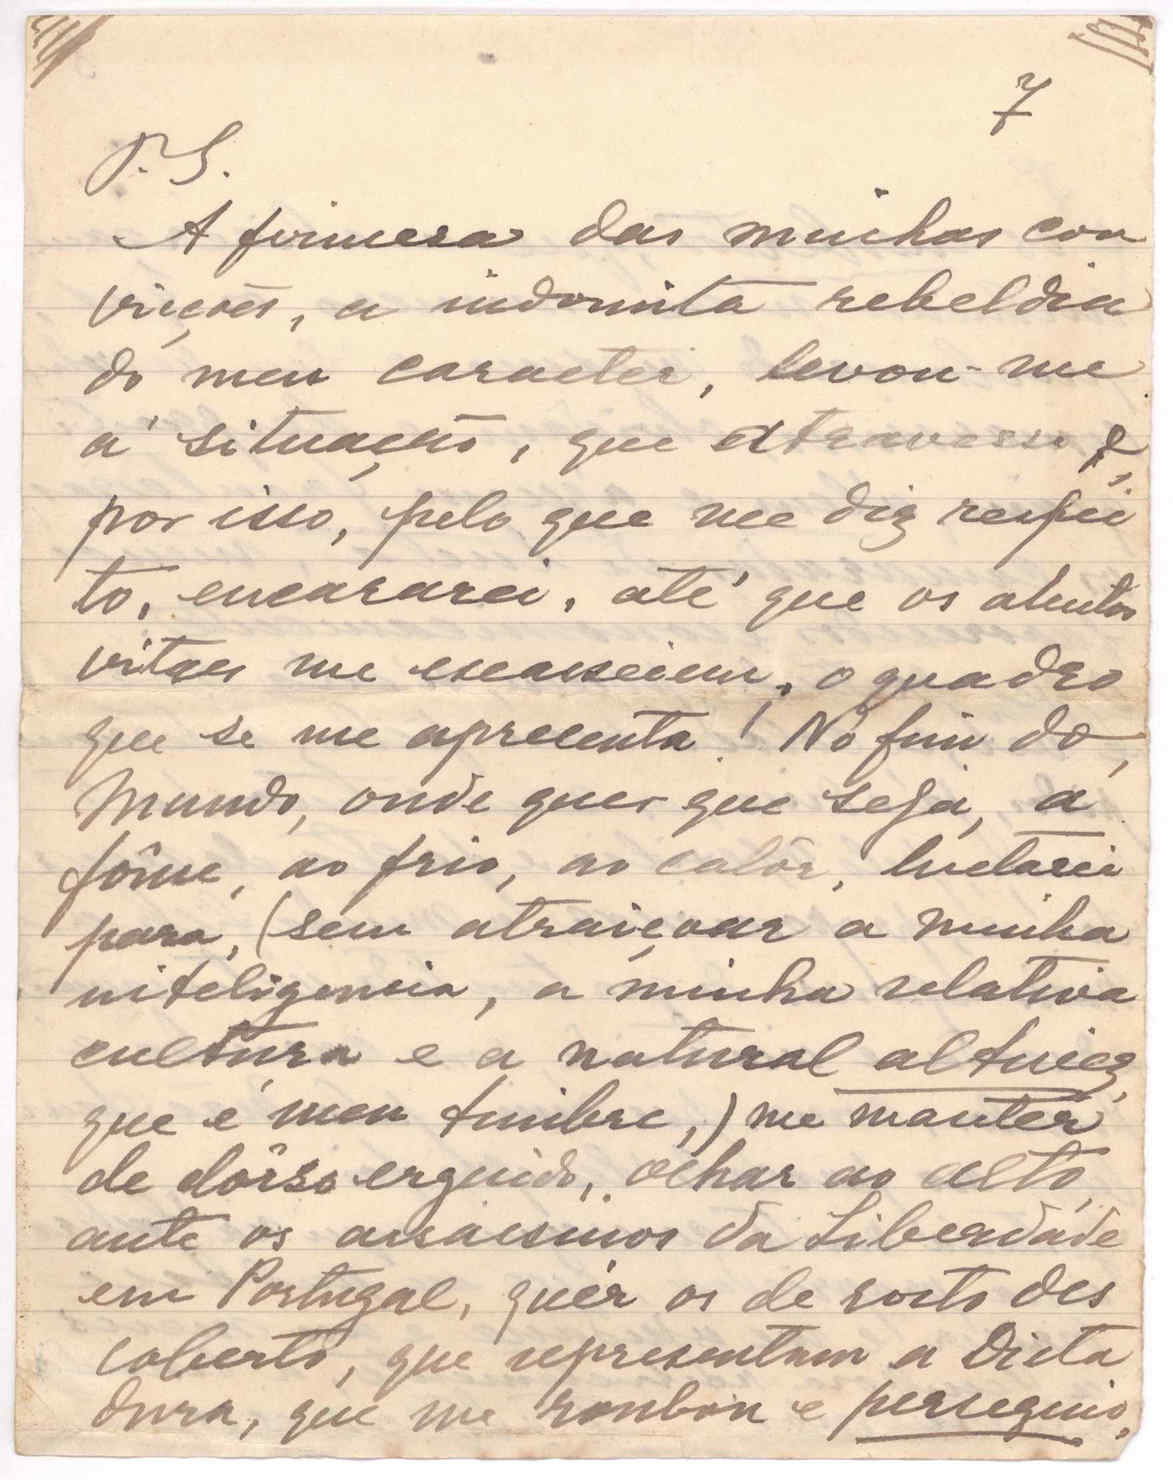 7
P. S.
A firmesa das minhas con
vicções, a indomita rebeldia
do meu caracter, levou-me
á situação, que atravesso e,
por isso, pelo que me diz respei
to, encararei, até que os alentos
vitaes me escasseiem, o quadro
que se me apresenta! No fim do
Mundo, onde quer que seja, á
fôme, ao frio, ao calôr, luctarei
para, (sem atraiçoar a minha
inteligencia, a minha relativa
cultura e a natural altivez,
que é meu timbre,) me manter
de dôrso erguido, olhar ao alto,
ante os assassinos da Liberdade
em Portugal, quér os de rosto des
coberto, que representam a Dicta
dura, que me roubou e perseguio,